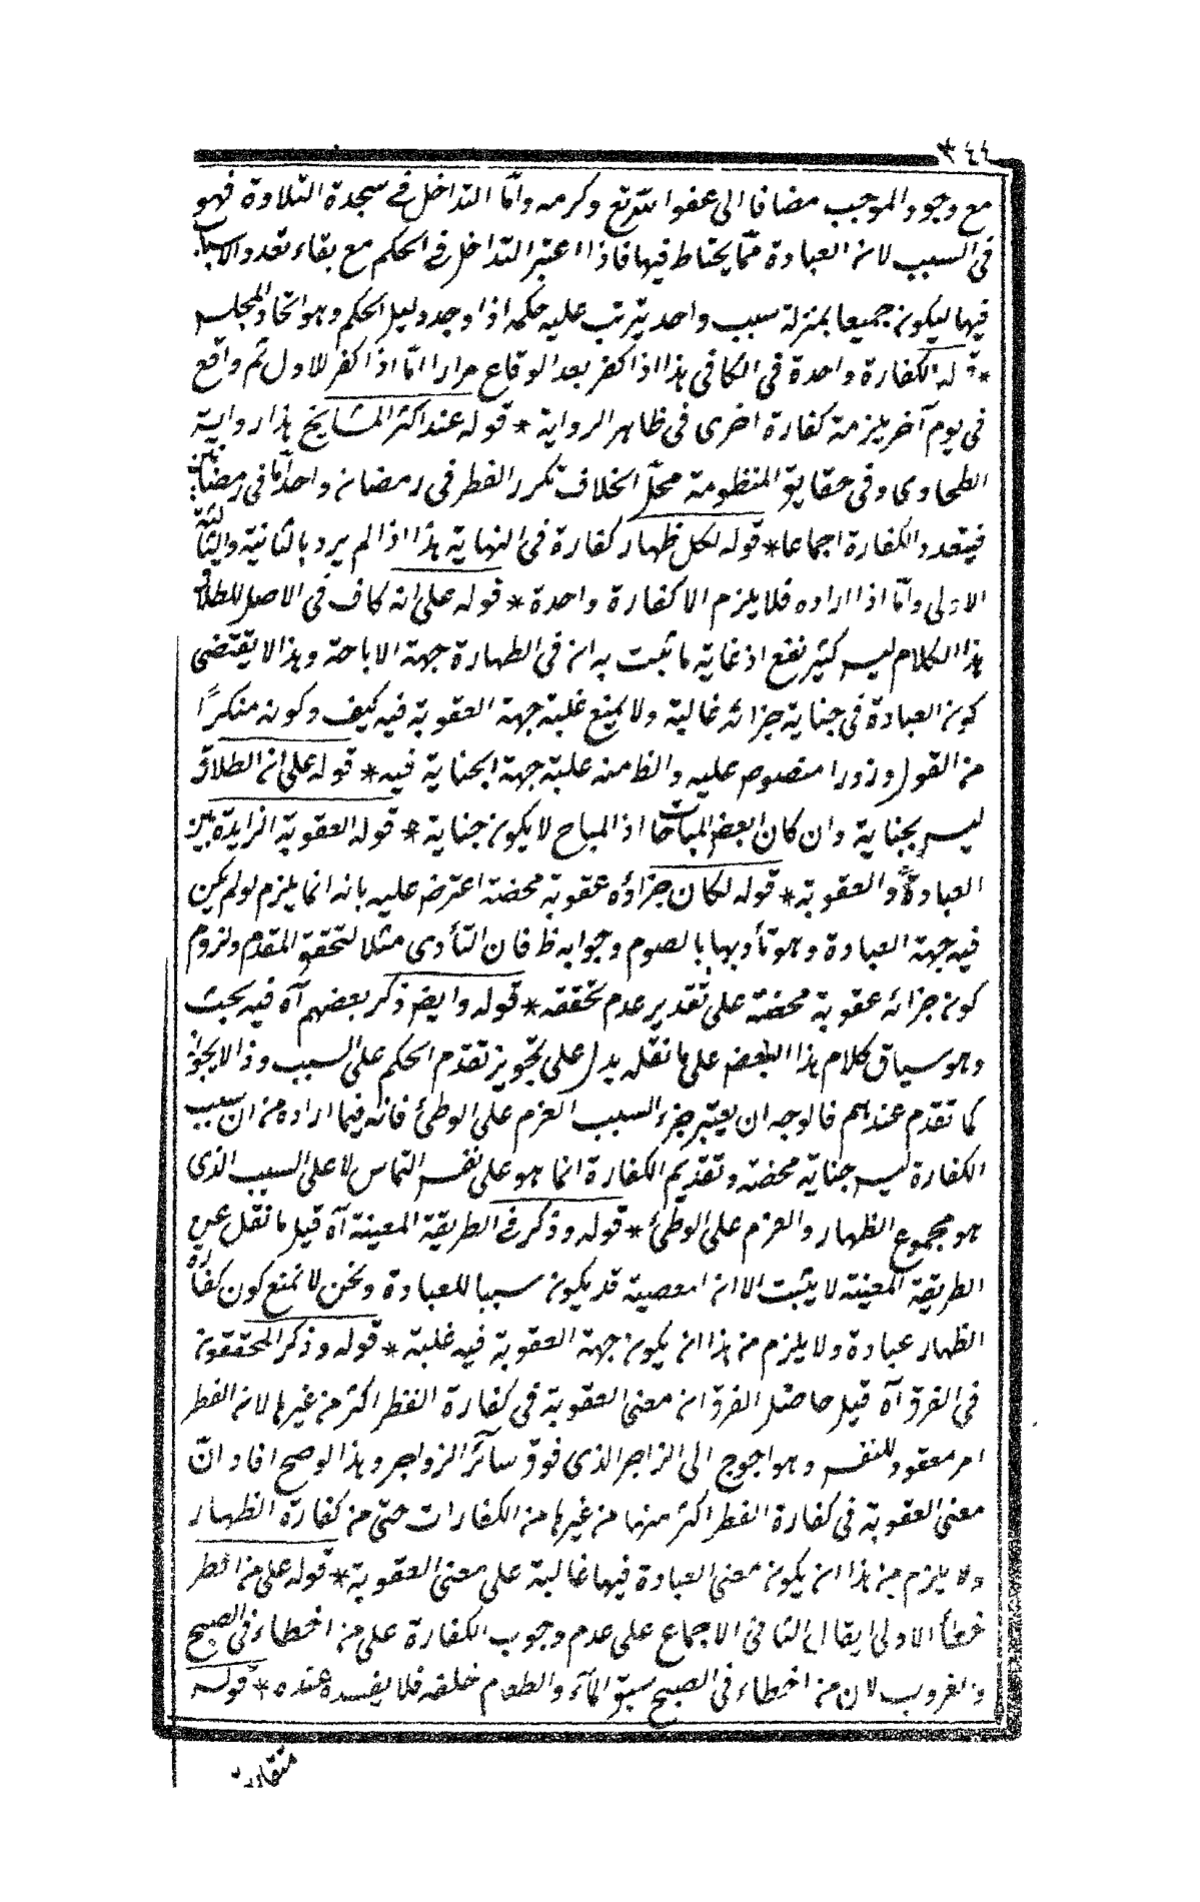 ٤٤ *
مع وجود الموجب مضافا الى عفو الله تع وكرمه واما التداخل فى سجدة التلاوة فهو
فى السبب لان العبادة مما يحتاط فيها فاذا اعتبر التداخل فى الحكم مع بقاء تعدد الاسباب
فيها ليكون جميعا بمنزلة سبب واحد يترتب عليه حكمه اذا وجد دليل الحكم وهو اتحاد المجلس
* قوله الكفارة واحدة فى الكافى هذا اذا كفر بعد الوقاع مرارا امّا اذا كفر للاول ثم واقع
فى يوم آخر يلزمه كفارة اخرى فى ظاهر الرواية * قوله عند اكثر المشايخ هذا رواية
الطحاوى وفى حقايق المنظومة محلّ الخلاف تكرر الفطر فى رمضان واحد امّا فى رمضانين
فيتعدد الكفارة اجماعا * قوله لكل ظهار كفارة فى النهاية هذا اذا لم يرد بالثانية والثالثة
الاولى وامّا اذا اراده فلا يلزم الا كفارة واحدة * قوله على انه كاف فى الاصل للطلاق
هذا الكلام ليس كثير نفع اذ غاية ما ثبت به ان فى الظهارة جهة الاباحة وهذا لا يقتضى
كون العبادة فى جناية جزائه غالبة ولا يمنع غلبة جهة العقوبة فيه كيف وكونه منكرًا
من القول وزورا منصوص عليه والظ منه غلبة جهة الجناية فيه * قوله على ان الطلاق
ليس بجناية وان كان ابغض المباحات اذ المباح لا يكون جناية * قوله العقوبة الزايدة بين
العبادة والعقوبة * قوله لكان جزاؤه عقوبة محضة اعترض عليه بانه انما يلزم لو لم يكن
فيه جهة العبادة وهو تأديها بالصوم وجوابه ظ فان التأدى مثلا لتحقق المقدم ولزوم
كون جزائه عقوبة محضة على تقدير عدم تحققه * قوله وايض ذكر بعضهم آه فيه بحث
وهو سياق كلام هذا البعض على ما نقله يدل على تجويز تقدّم الحكم على السبب وذا لا يجوز
كما تقدم عندهم فالوجه ان يعتبر جزء السبب العزم على الوطئ فانّه فيما اراده من ان سبب
الكفارة ليس جناية محضة وتقديم الكفارة انما هو على نفس التماس لا على السبب الذى
هو مجموع الظهار والعزم على الوطئ * قوله وذكر فى الطريقة المعينة آه قيل ما نقل عن
الطريقة المعينة لا يثبت الا ان امعصية قد يكون سببا للعبادة ونحن لا نمنع كون كفارة
الظهار عبادة ولا يلزم من هذا ان يكون جهة العقوبة فيه غلبة * قوله وذكر المحققون
فى الفرق آه قيل حاصل الفرق ان معنى العقوبة فى كفارة الفطر اكثر من غيرها لان الفطر
امر معقود للنفس وهو احوج الى الزاجر الذى فوق سائر الزواجر وهذا لو صح افاد انّ
معنى العقوبة فى كفارة الفطر اكثر منها من غيرها من الكفارات حتى من كفارة الظهار
ولا يلزم من هذا ان يكون معنى العبادة فيها غالبة على معنى العقوبة * قوله على من افطر
خطأ الاولى ايقال الثانى الاجماع على عدم وجوب الكفارة على من اخطاء فى الصبح
والغروب لان من اخطاء فى الصبح سبق الماء والطعام خلقه فلا يفسده عنده * قوله